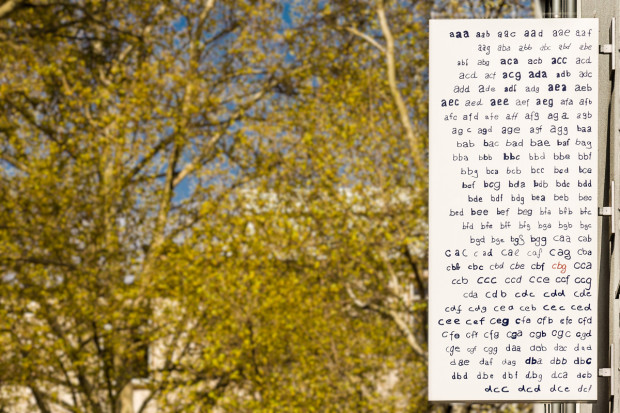 aaa aab aac aad aae aaf
aag aba abb abc abd abe
abf abg aca acb acc acd
ace acf acg ada adb adc
add ade adf adg aea aeb
aec aed aee aef aeg afa afb
afc afd afe aff afg aga agb
agc agd age agf agg baa
bab bac bad bae baf bag
bba bbb bbc bbd bbe bbf
bbg bca bcb bcc bcd bce
bcf bcg bda bdb bdc bdd
bde bdf bdg bea beb bec
bed bee bef beg bfa bfb bfc
bfd bfe bff bfg bga bgb bgc
bgd bge bgf bgg caa cab
cac cad cae caf cag cba
cbb cbc cbd cbe cbf cbg cca
ccb ccc ccd cce ccf ccg
cda cdb cdc cdd cde
cdf cdg cea ceb cec ced
cee cef ceg cfa cfb cfc cfd
cfe cff cfg cga cgb cgc cgd
cge cgf cgg daa dab dac dad
dae daf dag dba dbb dbc
dbd dbe dbf dbg dca dcb
dcc dcd dce dcf